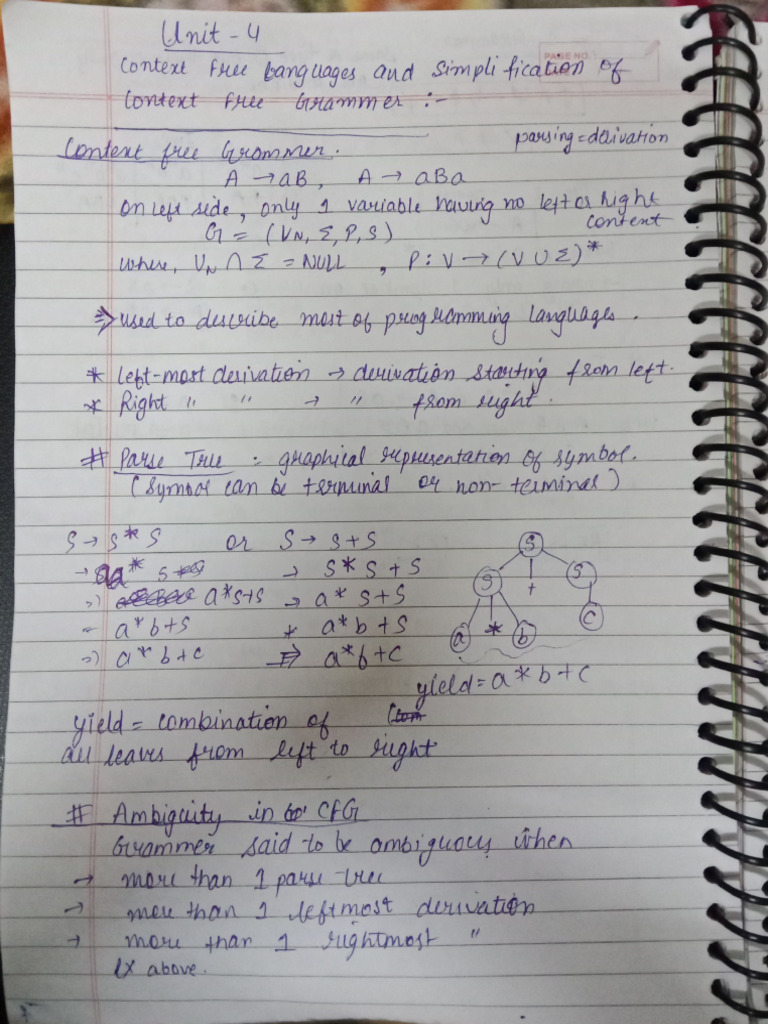 Unit - 4
PAGE NO.
Context free Languages and Simplification of
Context free Grammer :-
Context free Grammer.
parsing = derivation
A → aB, A → aBa
on left side, only 1 variable having no left or right
content
G = (VN, Σ, P, S)
where, VN ∩ Σ = NULL , P : V → (V ∪ Σ)*
⇒ used to describe most of programming languages.
* left-most derivation → derivation starting from left.
* Right " " → " from right.
# Parse Tree : graphical representation of symbol.
(symbol can be terminal or non-terminal)
S → S * S or S → S + S
→ a * S → S * S + S
⇒ a * S + S → a * S + S
= a * b + S * a * b + S
⇒ a * b + C ⇒ a * b + C
S
S + S
a * b C
yield = a * b + C
yield = combination of
all leaves from left to right
# Ambiguity in CFG
Grammer said to be ambiguous when
→ more than 1 parse tree
→ more than 1 leftmost derivation
→ more than 1 rightmost "
Ex above.